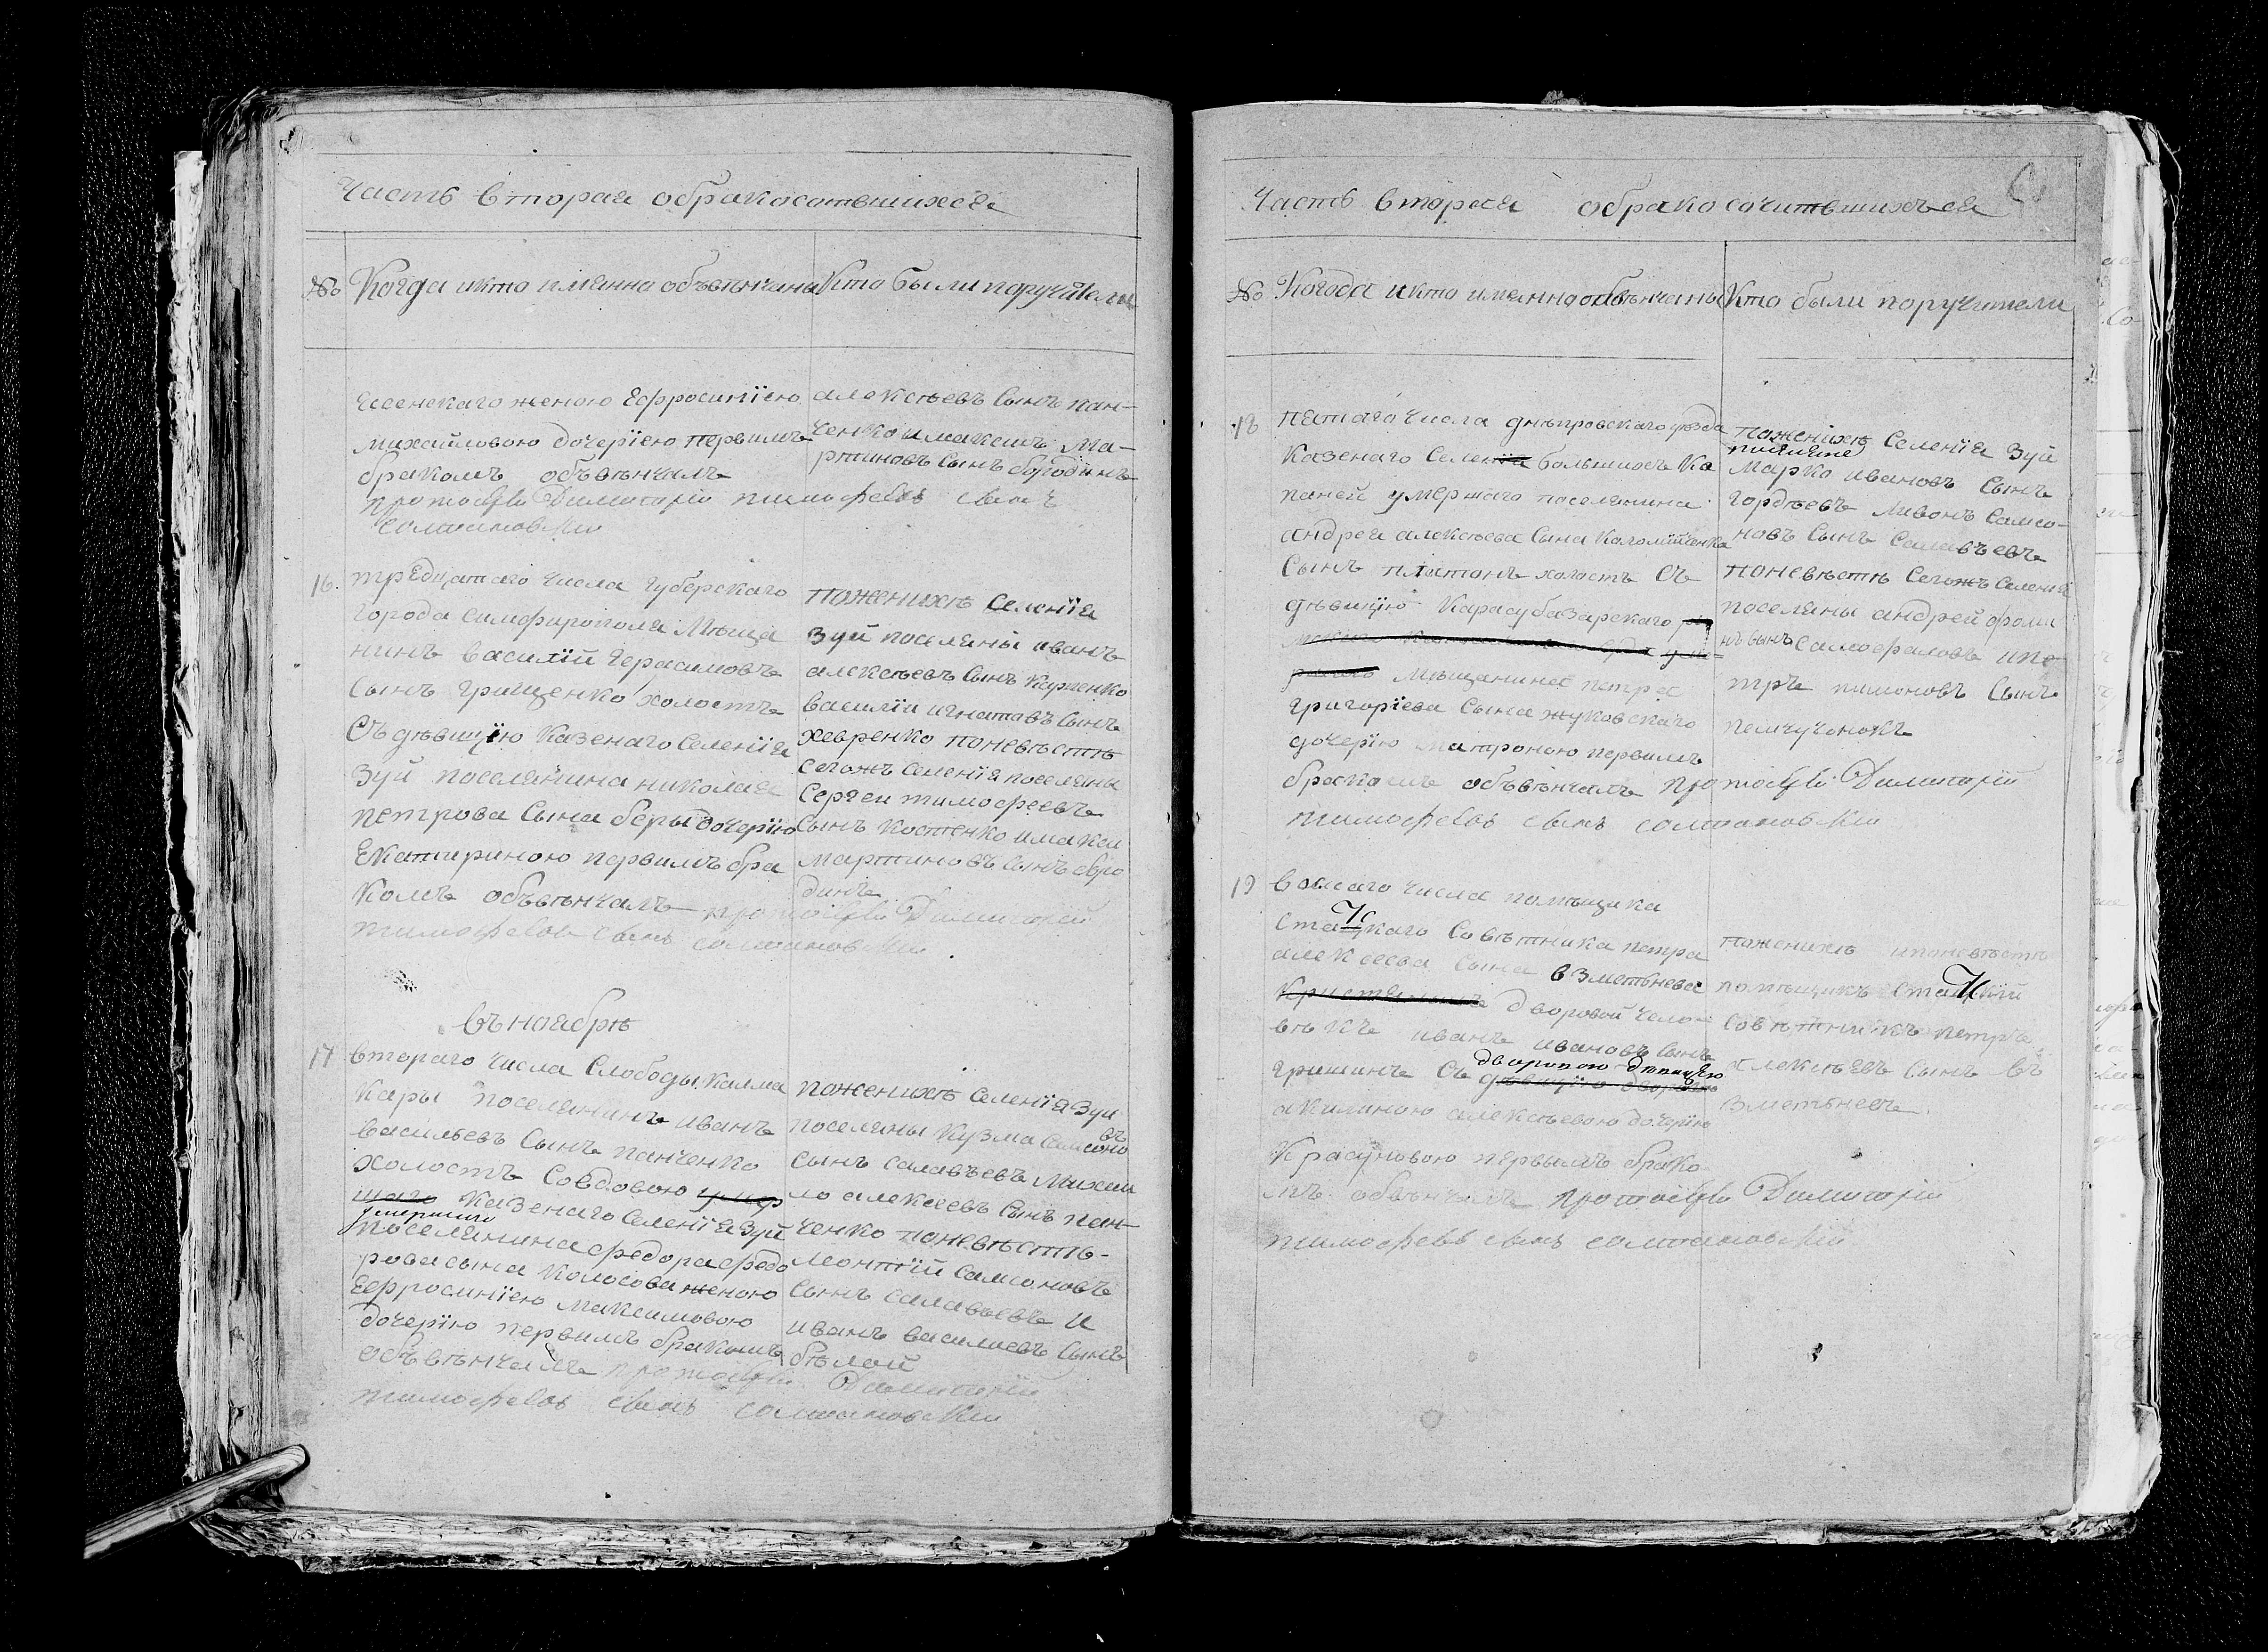 Часть вторая обракосотвшихся
№ Когда икто имянно объвѣнчаны Кто были поручители
женою Ефросинїею
михайловою дочерїею первимъ
бракомъ объвѣнчалъ
протоиерей Димитрїй тимофеевъ сынъ
алексѣевъ Сынъ пан-
ченко и максимъ Ма-
ртиновъ Сынъ бородинъ
16. тредцатаго числа губерскаго
города симфирополя Мѣща
нинъ василїй герасимовъ
Сынъ грищенко холостъ
Съ дѣвицїю Казенаго Селенїя
Зуй поселянина николая
петрова Сына беры дочерїю
Екатириною первимъ бра
комъ объвѣнчалъ протоиерей Димитрїй
тимофеевъ сынъ
поженихѣ Селенїя
Зуй поселяны иванъ
алексѣевъ Сынъ Карпенко
василїи игнатовъ Сынъ
хевренко поневѣстѣ
Сегожъ Селенїя поселяны
Сергеи тимофеевъ
Сынъ Костенко имакси
Мартиновъ Сынъ
динъ
въ ноябрѣ
17 втораго числа Слободы Калма
Кары поселянинъ иванъ
васильевъ Сынъ панченко
холостъ Совдовою умер
шаго Казенаго Селенїя Зуй
умершаго
поселянина федора федо
рова сына Колосова женою
Ефросинїею Максимовою
дочерїю первимъ бракомъ
объвѣнчалъ протоиерей Димитрїй
тимофеевъ сынъ
поженихѣ Селенїя Зуи
поселяны Кузма Самсоно
въ
Сынъ салавъевъ Михаи
ло алексеевъ Сынъ пан-
ченко поневѣстѣ-
леонтїй Самсоновъ
Сынъ салавьевъ и
иванъ василиевъ Сынъ
бѣлой
Часть вторая обракосочитвшихъся
№ Когода икто имянно обвѣнчаны Кто были поручители
18 пятаго числа днѣпровскаго уѣзда
Казенаго Селенїя большихъ Ка
паней умершаго поселянина
андрея алексѣева Сына Коломїйченка
Сынъ платонъ холостъ Съ
дѣвицїю Карасубазарскаго
Мѣщанина петра
григорїева Сына жуковскаго
дочерїю матроною первимъ
бракомъ объвѣнчалъ протоиерей Димитрїй
тимофеевъ сынъ
поженихѣ Селенїя Зуй
поселяне
Марко ивановъ Сынъ
гордѣевъ ливонъ Самсо-
новъ Сынъ Салавъевъ
поневѣстѣ Сегожъ Селенїя
поселяны андрей фоми
нъ сынъ Самофаловъ ипе
тръ пимоновъ Сынъ
19 восмаго числа помѣщика
Статскаго Совѣтника петра
алексеева Сына взметьнева
дворовой чело-
вѣкъ иванъ ивановъ Сынъ
гришинъ Съ дѣвицїю
дворовою дѣвицею
акилиною алексѣевою дочерїю
Красуновою первымъ брако
мъ обвѣнчалъ протоиерей Димитрїй
тимофеевъ сынъ
поженихѣ ипоневѣстѣ
помѣщикъ Статскїй
Совѣтникъ петръ
алексѣевъ Сынъ въ
зметьневъ